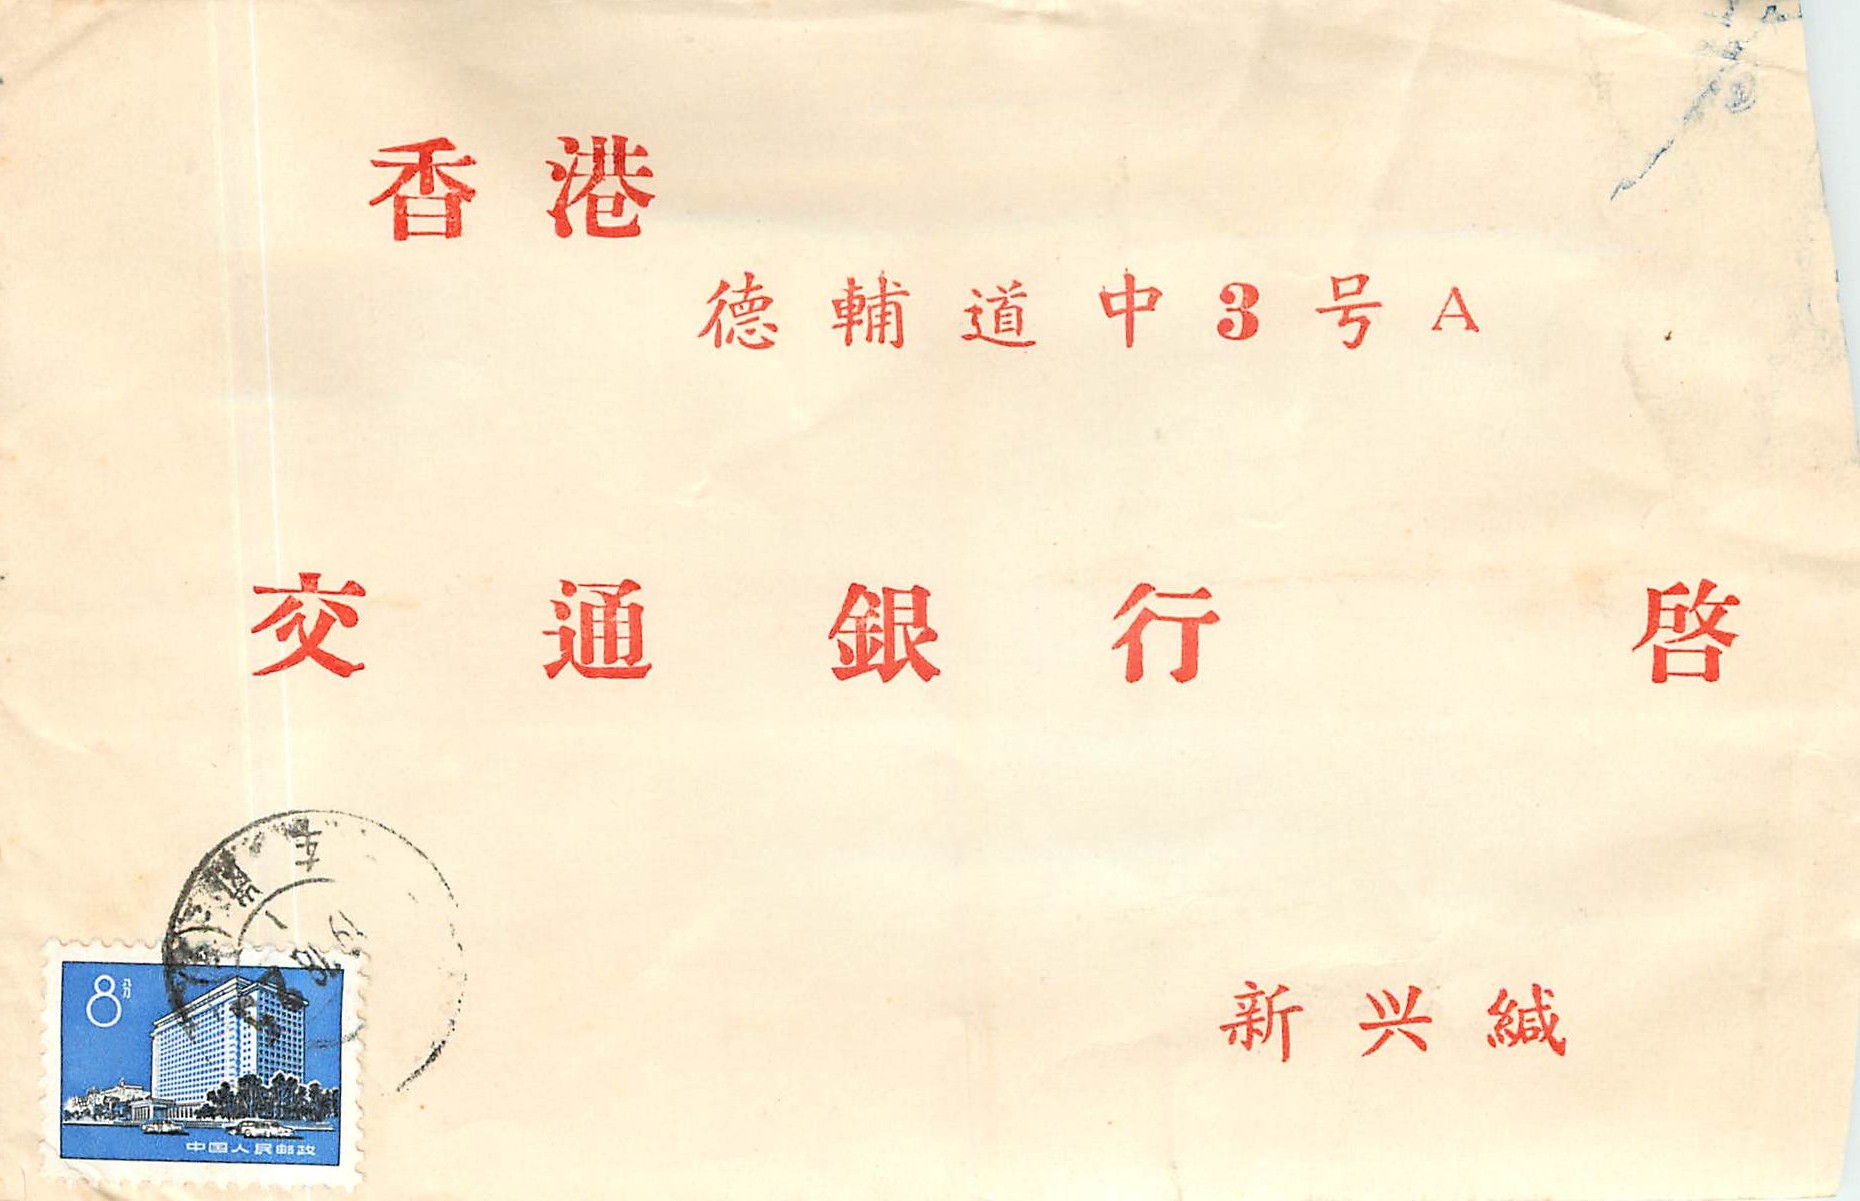 香港
德輔道中3号A
交通銀行 啓
新兴緘
8分
中国人民邮政